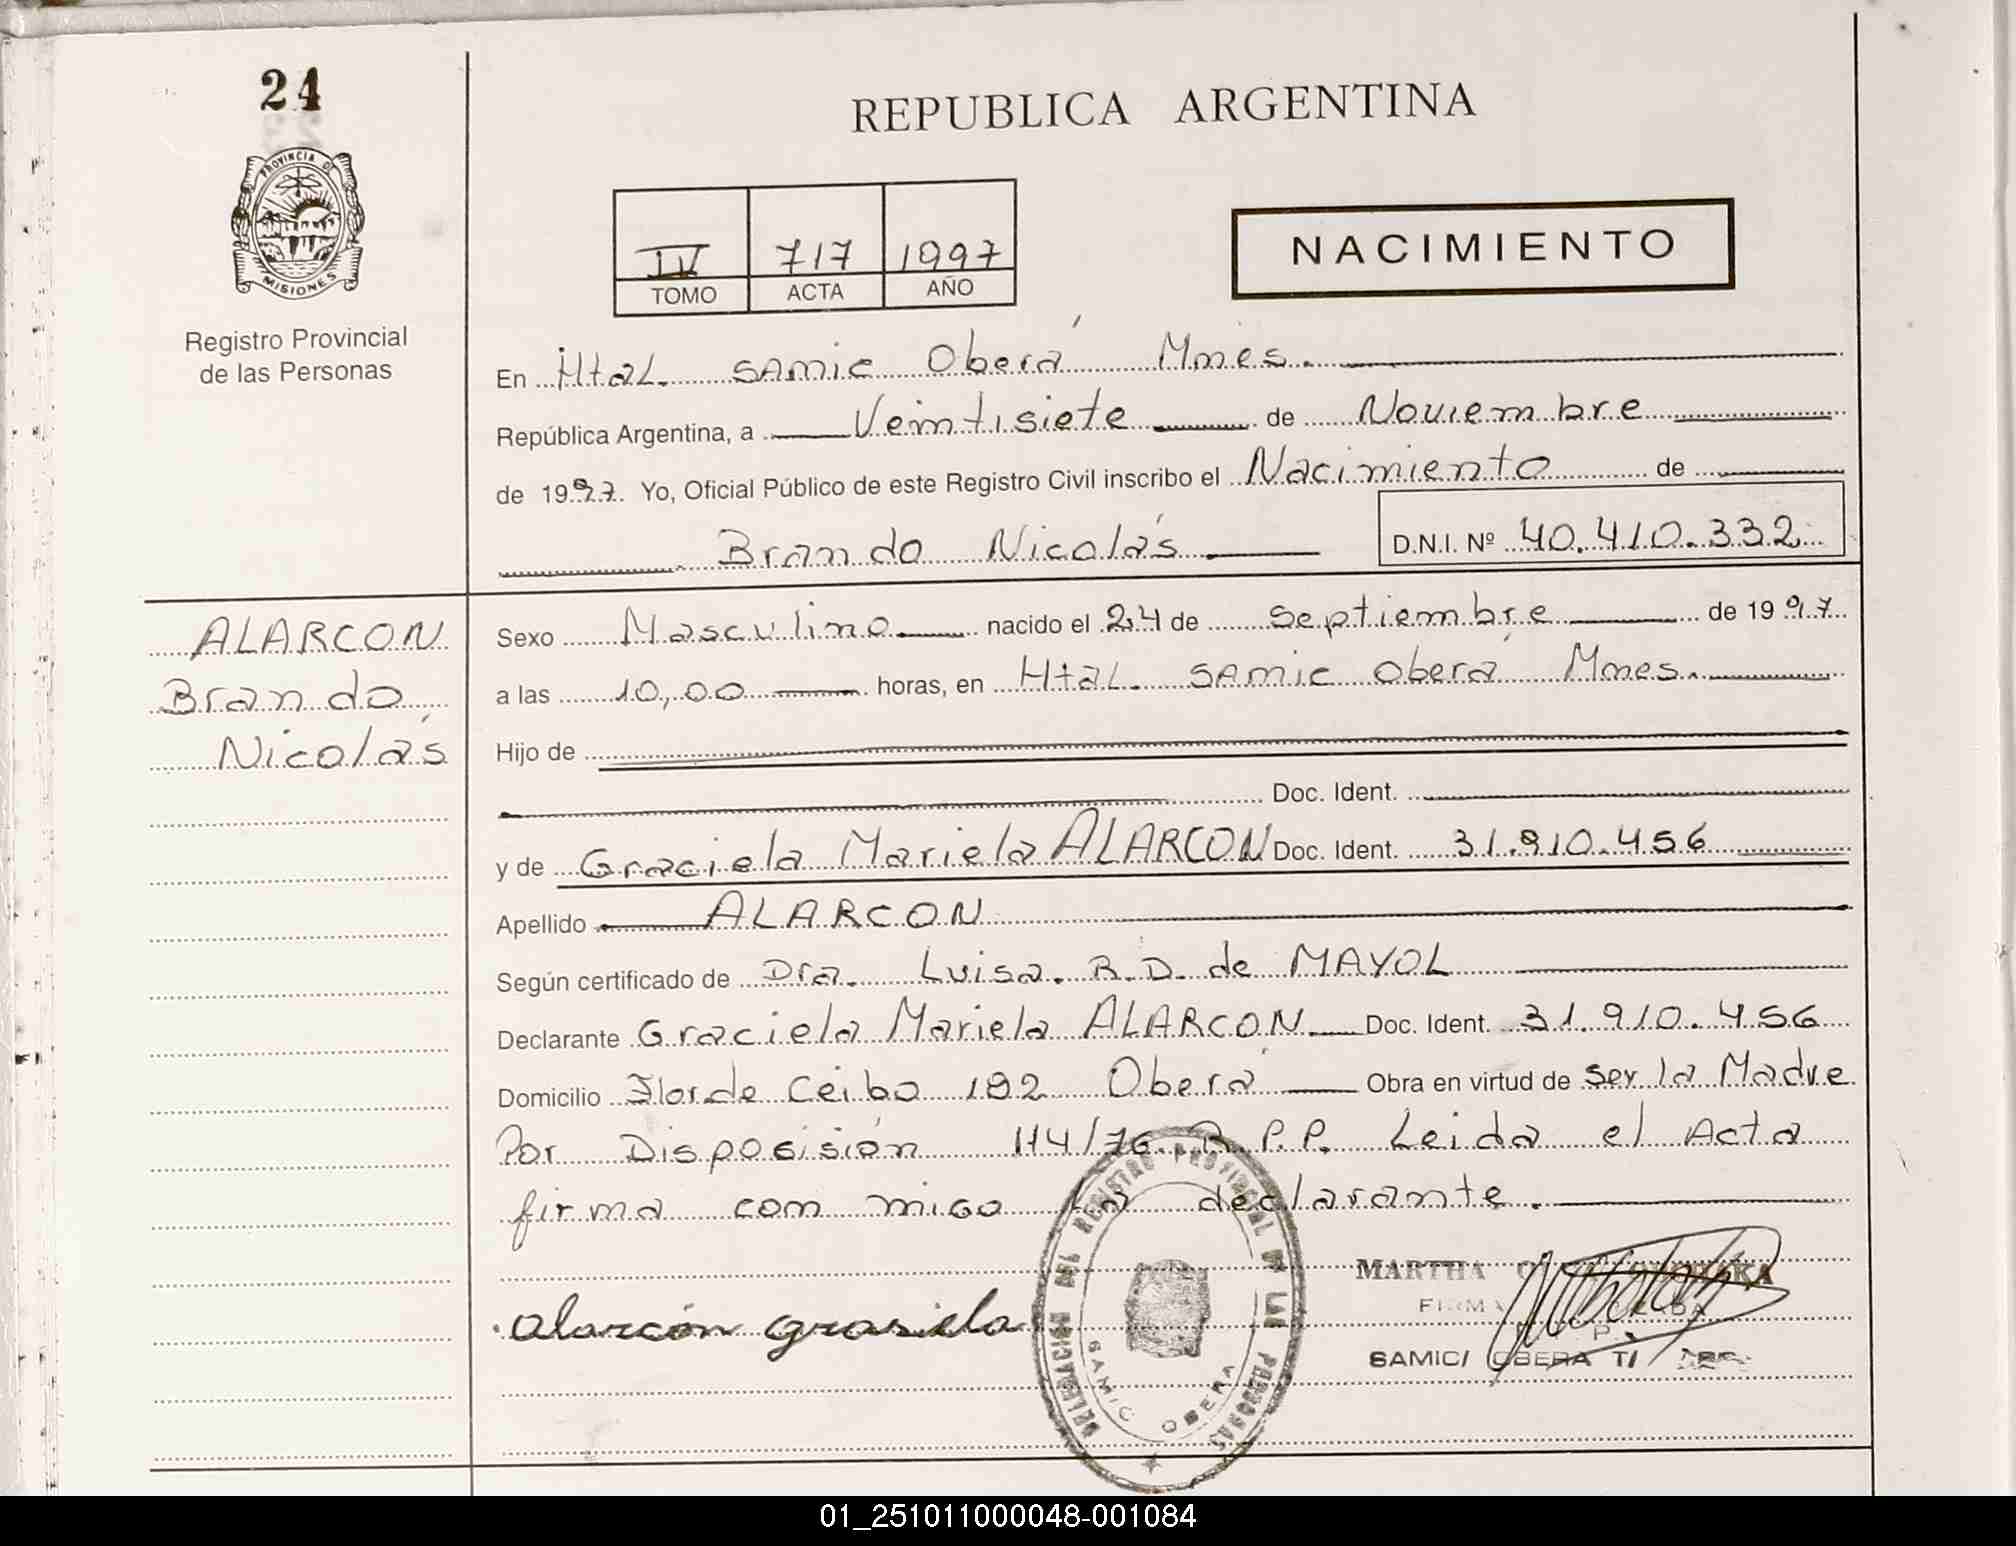 24
PROVINCIA DE
MISIONES
Registro Provincial
de las Personas
REPUBLICA ARGENTINA
IV 717 1997
TOMO ACTA AÑO
NACIMIENTO
En Htal. SAMIC Oberá Mnes.
República Argentina, a Veintisiete de Noviembre
de 1997. Yo, Oficial Público de este Registro Civil inscribo el Nacimiento de
Brando Nicolás D.N.I. Nº 40.410.332
ALARCON
Brando
Nicolás
Sexo Masculino nacido el 24 de Septiembre de 1997
a las 10,00 horas, en Htal. SAMIC Oberá Mnes.
Hijo de
Doc. Ident.
y de Graciela Mariela ALARCON Doc. Ident. 31.910.456
Apellido ALARCON
Según certificado de Dra. Luisa. R.D. de MAYOL
Declarante Graciela Mariela ALARCON Doc. Ident. 31.910.456
Domicilio Flor de Ceibo 192 Oberá Obra en virtud de ser la Madre
Por Disposisión 114/76 R.P.P. Leida el Acta
firma con migo la declarante.
alarcón grasiela
DELEGACION DEL REGISTRO PROVINCIAL DE LAS PERSONAS
SAMIC OBERA
MARTHA
FIRMA
SAMIC/ OBERA
01_251011000048-001084